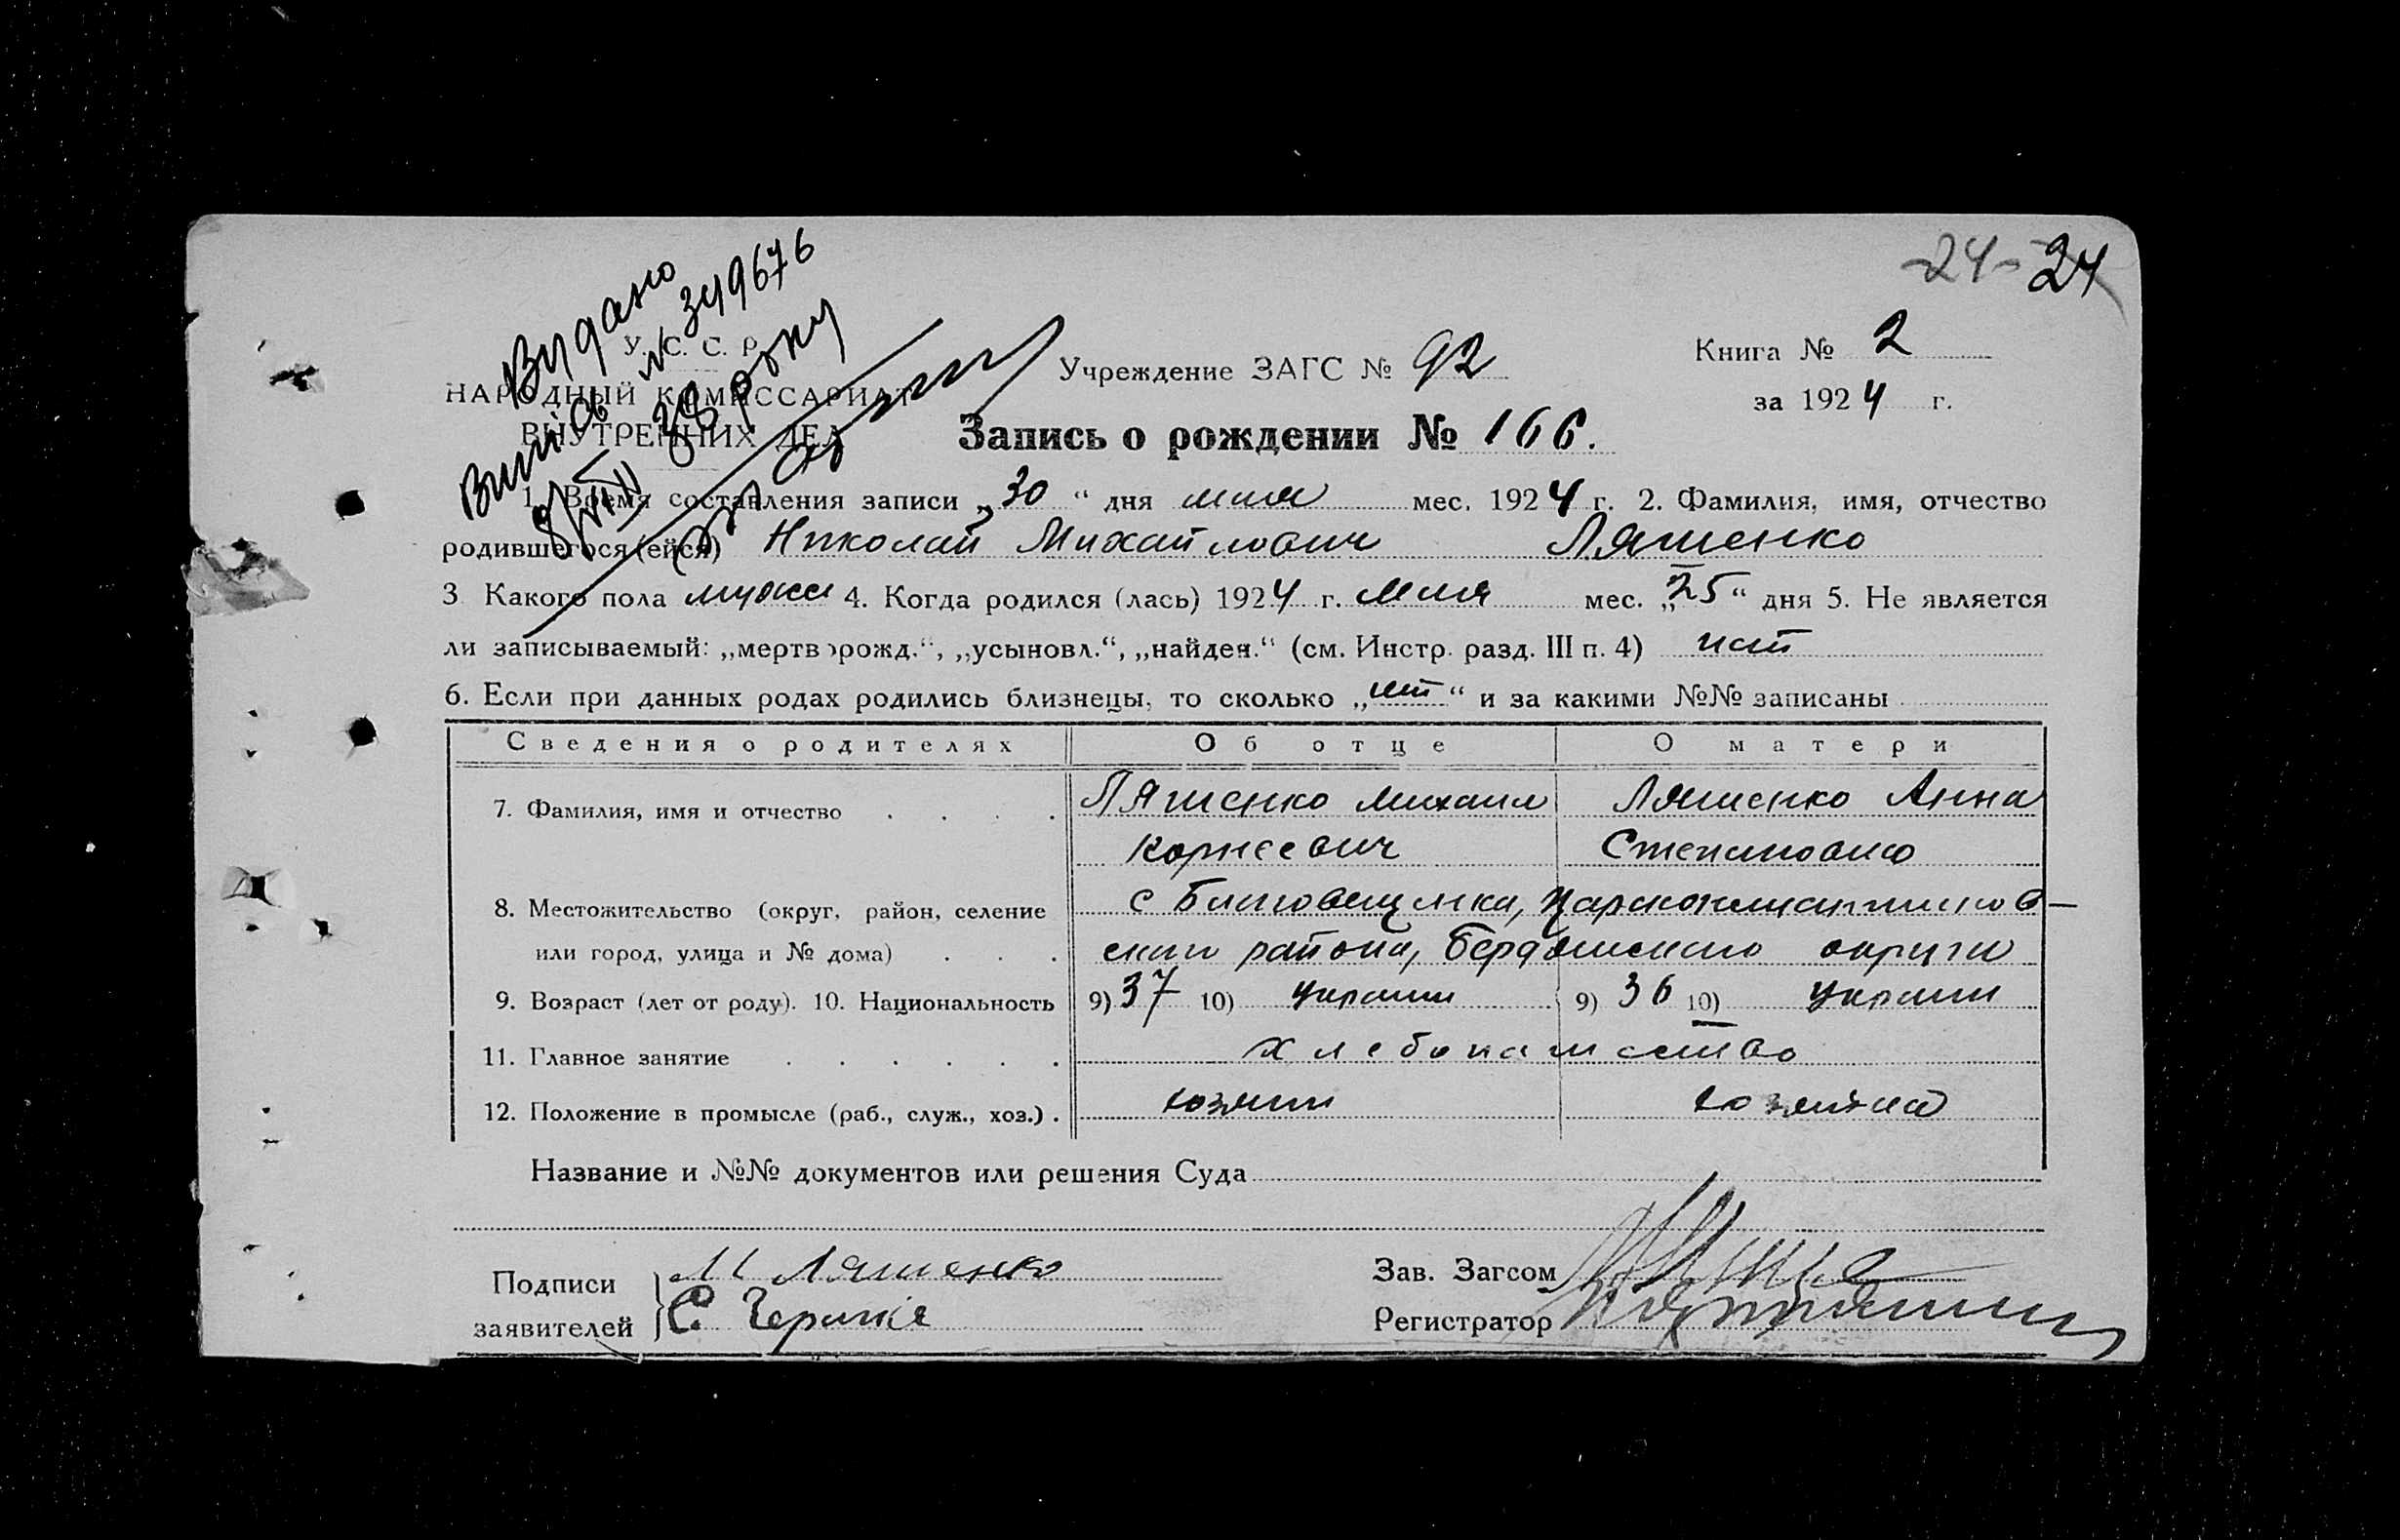 24 24
Видано
Витяг № 349676
8/VIII 38 року
У. С. С. Р.
НАРОДНЫЙ КОМИССАРИАТ
ВНУТРЕННИХ ДЕЛ
Учреждение ЗАГС № 92
Книга № 2
за 1924 г.
Запись о рождении № 166.
1. Время составления записи „30“ дня мая мес. 1924 г. 2. Фамилия, имя, отчество
родившегося (ейся) Николай Михайлович Ляшенко
3 Какого пола мужс 4. Когда родился (лась) 1924 г. Мая мес. „25“ дня 5. Не является
ли записываемый: „мертворожд.“, „усыновл.“, „найден.“ (см. Инстр. разд. III п. 4) нет
6. Если при данных родах родились близнецы, то сколько „нет“ и за какими №№ записаны
Сведения о родителях Об отце О матери
7. Фамилия, имя и отчество . . . . Ляшенко Михаил Ляшенко Анна
Корнеевич Степановна
8. Местожительство (округ, район, селение с Благовещенка, Царсконстантинов-
или город, улица и № дома) . . . ского района, Бердянского округа
9. Возраст (лет от роду). 10. Национальность 9) 37 10) Украин 9) 36 10) Украин
11. Главное занятие . . . . . . хлебопашество
12. Положение в промысле (раб., служ., хоз.) . хозяин хозяйка
Название и №№ документов или решения Суда
Подписи М Ляшенко Зав. Загсом
заявителей С. Регистратор